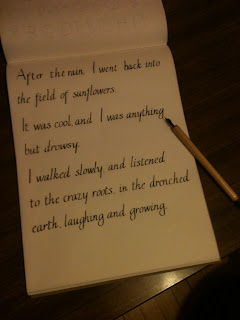 After the rain, I went back into
the field of sunflowers.
It was cool, and I was anything
but drowsy.
I walked slowly and listened
to the crazy roots, in the drenched
earth, laughing and growing.